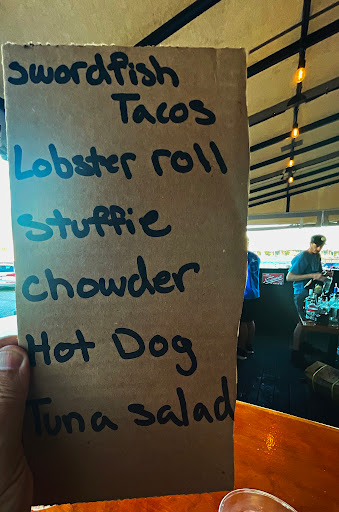 swordfish
Tacos
Lobster roll
stuffie
chowder
Hot Dog
Tuna salad